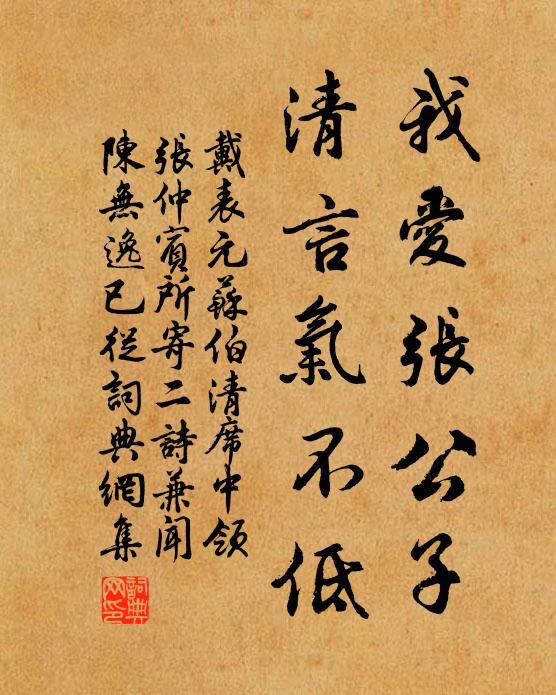 我愛張公子
清言氣不低
戴表元蘇伯清席中領
張仲賓所寄二詩兼聞
陳無逸已從詞典網集
詞典網印